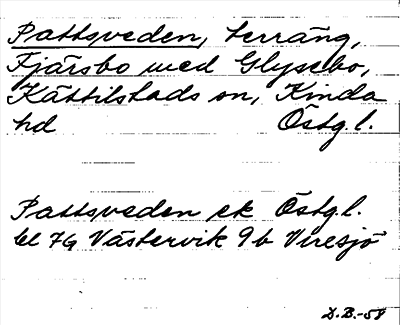 Pattsveden, terräng,
Fjärsbo med Glysebo,
Kättilstads sn, Kinda
hd Östg.l.
Pattsveden ek Östg.l.
bl 7G Västervik 9b Viresjö
D.B.-58